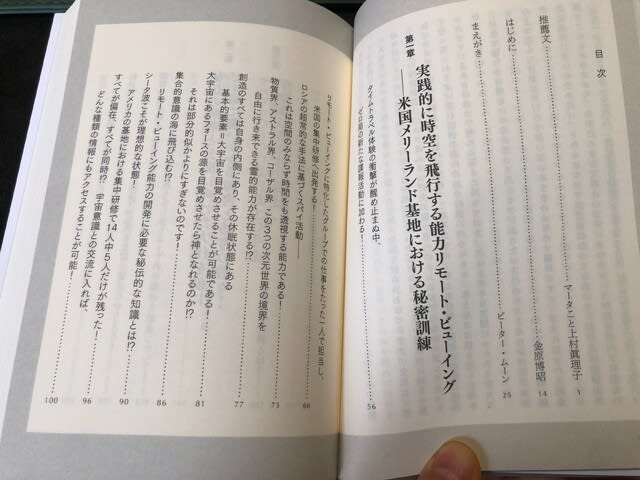 目次
推薦文 マータこと上村眞理子 1
はじめに 金原博昭 14
まえがき ピーター・ムーン 25
第一章
実践的に時空を飛行する能力リモート・ビューイング
——米国メリーランド基地における秘密訓練
タイムトラベル体験の衝撃が醒め止まぬ中、
ゼロ局の新たな諜報活動に加わる! 56
リモート・ビューイングに特化したグループでの仕事をたった一人で担当し、
米国の集中研修へ出発する! 66
ロシアの超常的な手法に基づくスパイ活動——
これは空間のみならず時間をも透視する能力である! 73
物質界、アストラル界、コーザル界、この3つの次元世界の境界を
自由に行き来できる霊的能力が存在する!? 77
創造のすべては自身の内側にあり、その休眠状態にある
基本的要素=大宇宙を目覚めさせることが可能である! 81
大宇宙にあるフォースの源を目覚めさせたら神となれるのか!?
それは部分的似かよりにすぎないのです! 86
集合的意識の海に飛び込む!?
リモート・ビューイング能力の開発に必要な秘伝的な知識とは!? 90
シータ波こそが理想的な状態!
アメリカの基地における集中研修で14人中5人だけが残った! 96
すべてが偏在、すべてが同時!? 宇宙意識との交流に入れば、
どんな種類の情報にもアクセスすることが可能! 100